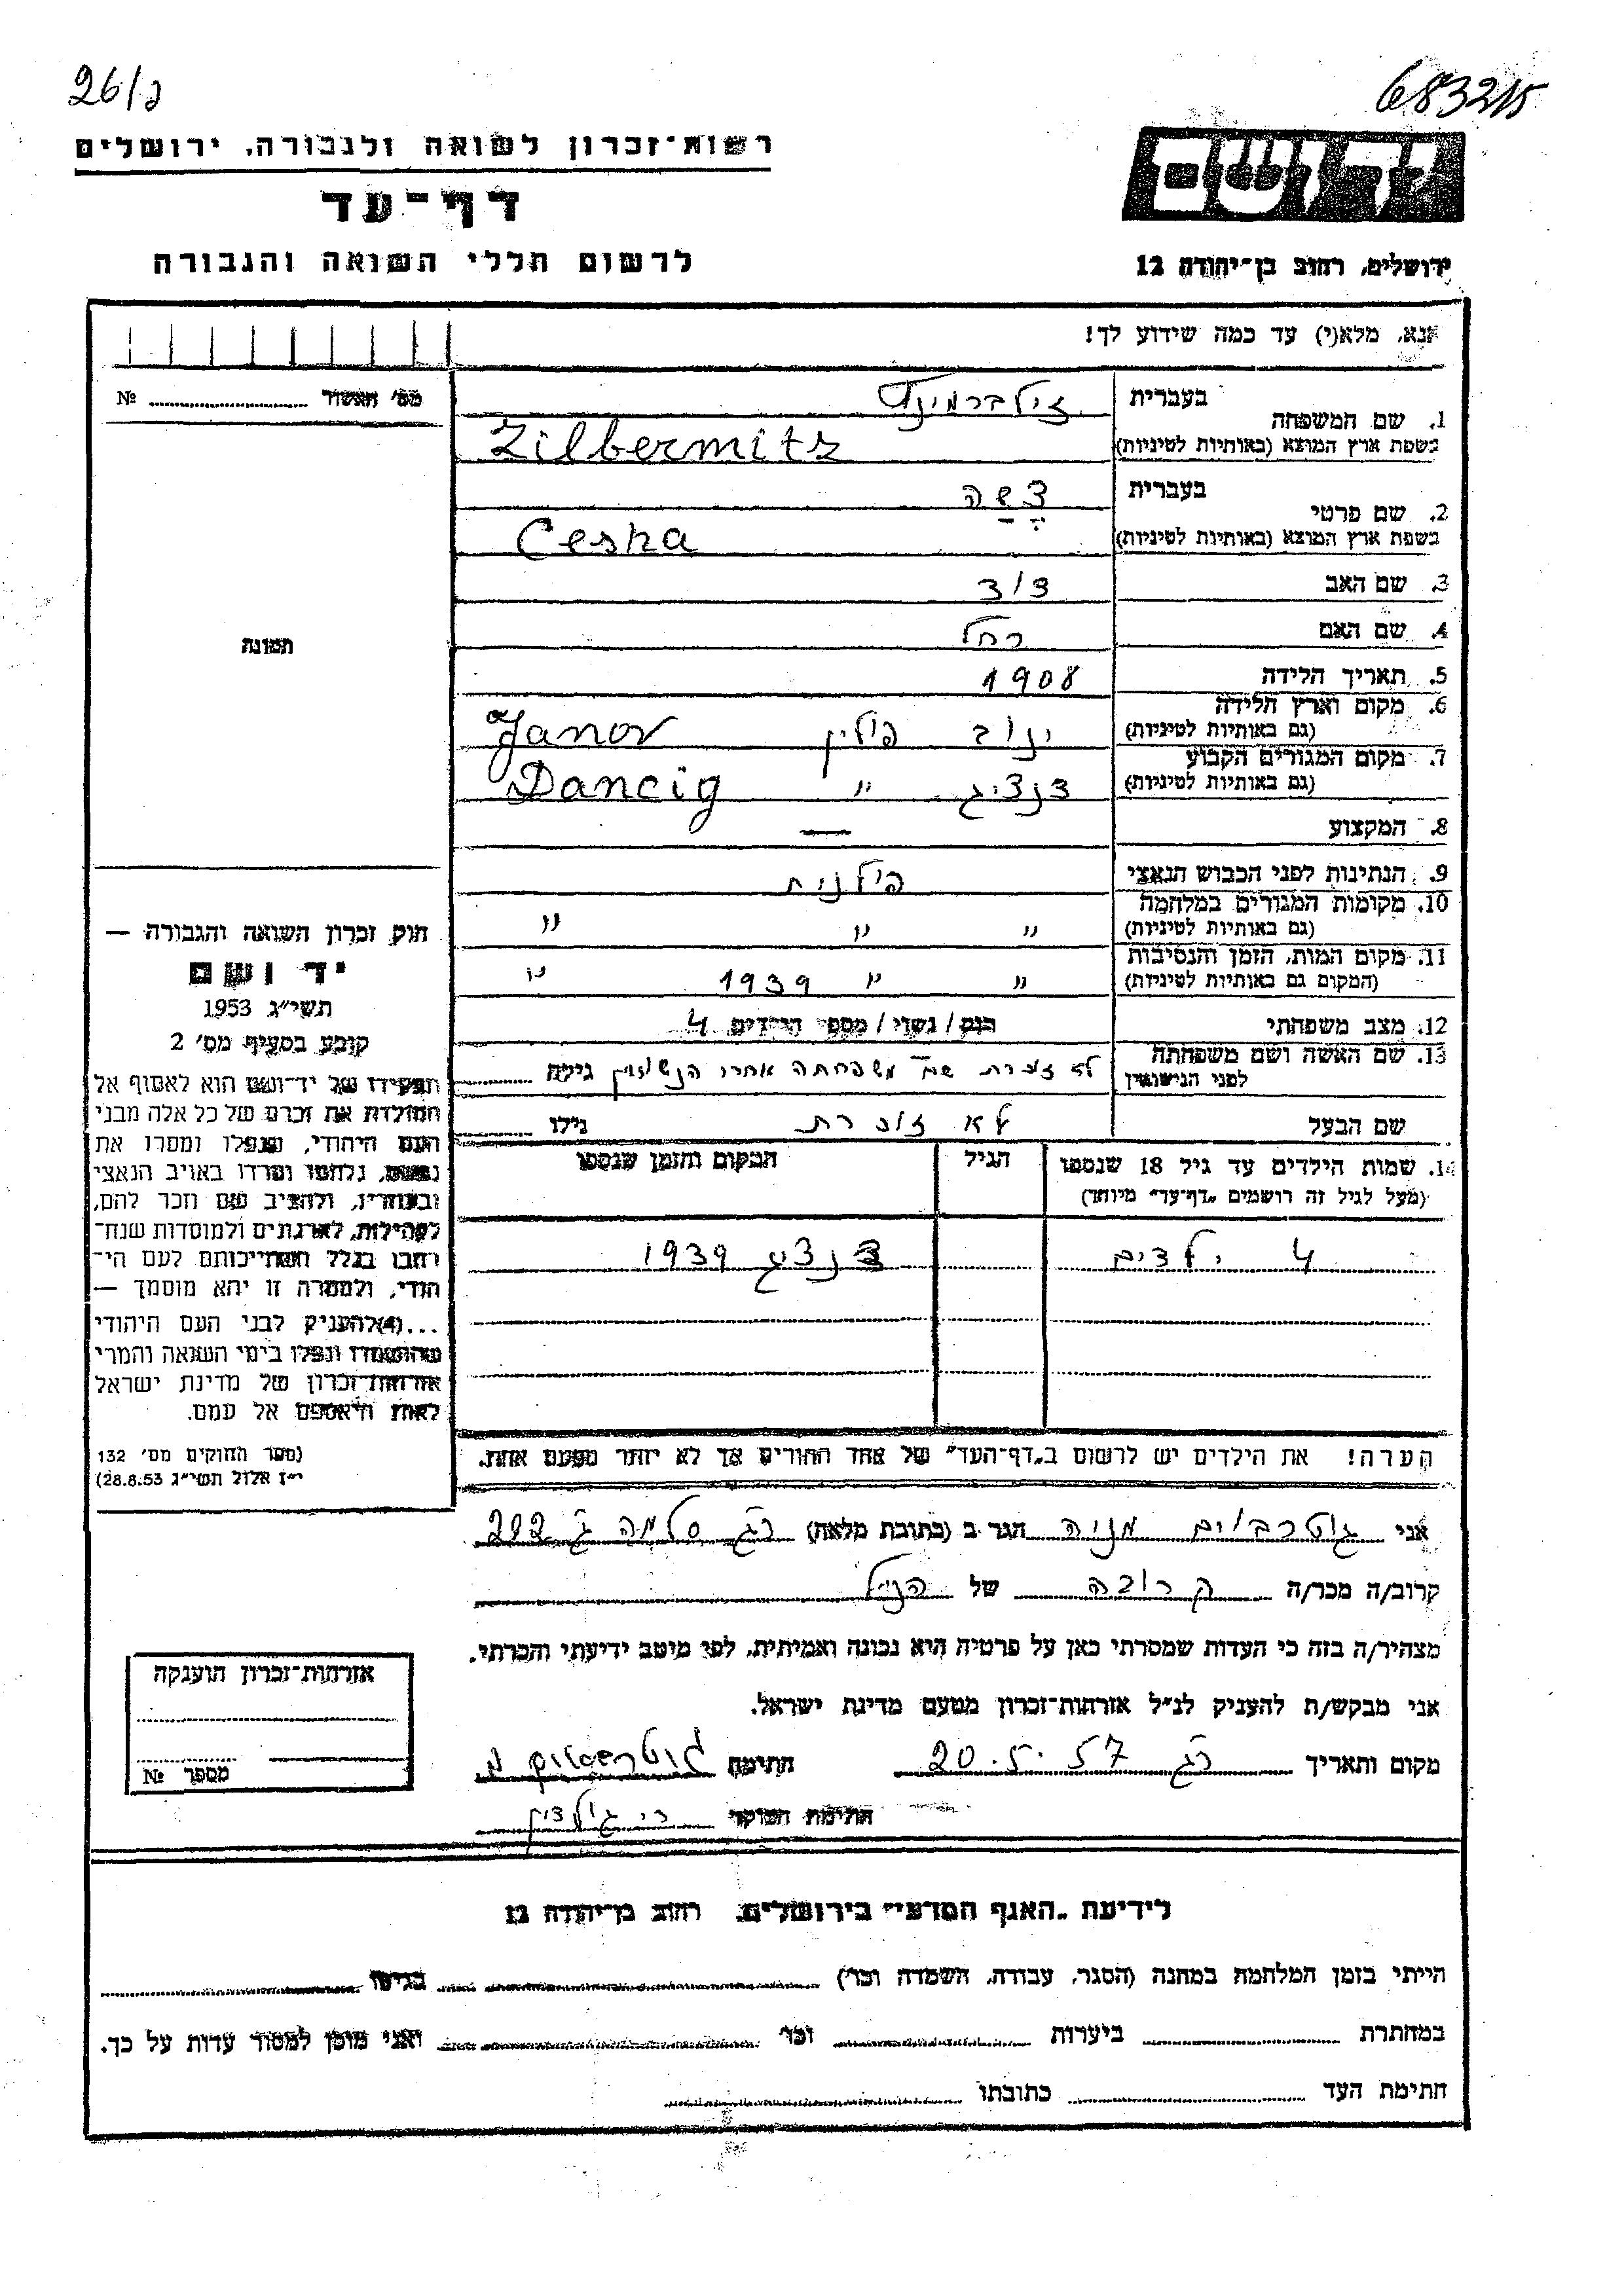 26/נ
683215
רשות־זכרון לשואה ולגבורה, ירושלים
דף־עד
לרשום חללי השואה והגבורה
יד ושם
ירושלים, רחוב בן־יהודה 12
אנא, מלא(י) עד כמה שידוע לך!
מס' האשור № 
1. שם המשפחה
בעברית זילברמינץ
בשפת ארץ המוצא (באותיות לטיניות) Zilbermitz
2. שם פרטי
בעברית צשה
בשפת ארץ המוצא (באותיות לטיניות) Cesha
3. שם האב דוד
4. שם האם רחל
5. תאריך הלידה 1908
6. מקום וארץ הלידה
(גם באותיות לטיניות) ינוב פולין Janov
7. מקום המגורים הקבוע
(גם באותיות לטיניות) דנציג " Dancig
8. המקצוע —
9. הנתינות לפני הכבוש הנאצי פולנית
10. מקומות המגורים במלחמה
(גם באותיות לטיניות) " " "
11. מקום המות, הזמן והנסיבות
(המקום גם באותיות לטיניות) " " 1939 "
12. מצב משפחתי רוק / נשוי / מספר הילדים 4
13. שם האשה ושם משפחתה
לפני הנישואין לא זוכרת שם משפחתה אחרי הנשואין גילה
שם הבעל לא זוכרת גילו
14. שמות הילדים עד גיל 18 שנספו
(מעל לגיל זה רושמים "דף־עד" מיוחד)
הגיל
המקום והזמן שנספו
4 ילדים דנציג 1939
הערה! את הילדים יש לרשום ב"דף־העד" של אחד ההורים אך לא יותר מפעם אחת.
תמונה
חוק זכרון השואה והגבורה —
יד ושם
תשי"ג 1953
קובע בסעיף מס' 2
תפקידו של יד־ושם הוא לאסוף אל
המולדת את זכרם של כל אלה מבני
העם היהודי, שנפלו ומסרו את
נפשם, נלחמו ומרדו באויב הנאצי
ובעוזריו, ולהציב שם וזכר להם,
לקהילות, לארגונים ולמוסדות שנח־
רבו בגלל השתייכותם לעם הי־
הודי, ולמטרה זו יהא מוסמך —
...(4) להעניק לבני העם היהודי
שהושמדו ונפלו בימי השואה והמרי
אזרחות־זכרון של מדינת ישראל
לאות היאספם אל עמם.
(ספר החוקים מס' 132
י"ז אלול תשי"ג 28.8.53)
אני גוטרבוים מניה הגר ב (כתובת מלאה) רג סלמה ג 292
קרוב/ה מכר/ה קרובה של הנ"ל
מצהיר/ה בזה כי העדות שמסרתי כאן על פרטיה היא נכונה ואמיתית, לפי מיטב ידיעתי והכרתי.
אני מבקש/ת להעניק לנ"ל אזרחות־זכרון מטעם מדינת ישראל.
מקום ותאריך רג 20.5.57 חתימה גוטרבוים מ
חתימת הפוקד
אזרחות־זכרון הוענקה
מספר №
לידיעת "האגף המדעי" בירושלים, רחוב בן־יהודה 12
הייתי בזמן המלחמה במחנה (הסגר, עבודה, השמדה וכו') בגיטו
במחתרת ביערות וכו' ואני מוכן למסור עדות על כך.
חתימת העד כתובתו